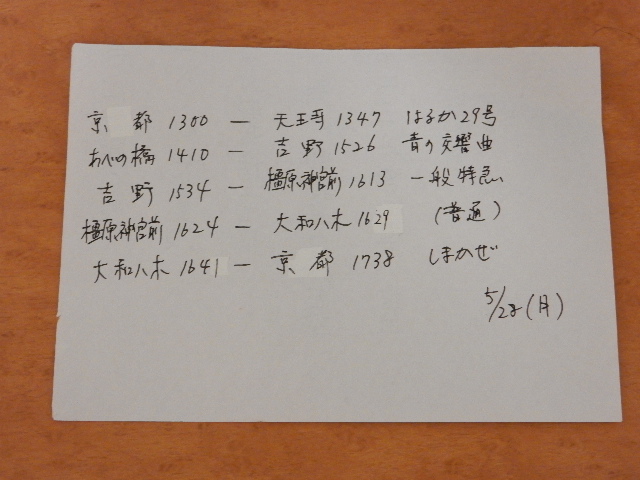 京都 1300 — 天王寺 1347 はるか29号
あべの橋 1410 — 吉野 1526 青の交響曲
吉野 1534 — 橿原神宮前 1613 一般特急
橿原神宮前 1624 — 大和八木 1629 (普通)
大和八木 1641 — 京都 1738 しまかぜ
5/28(月)